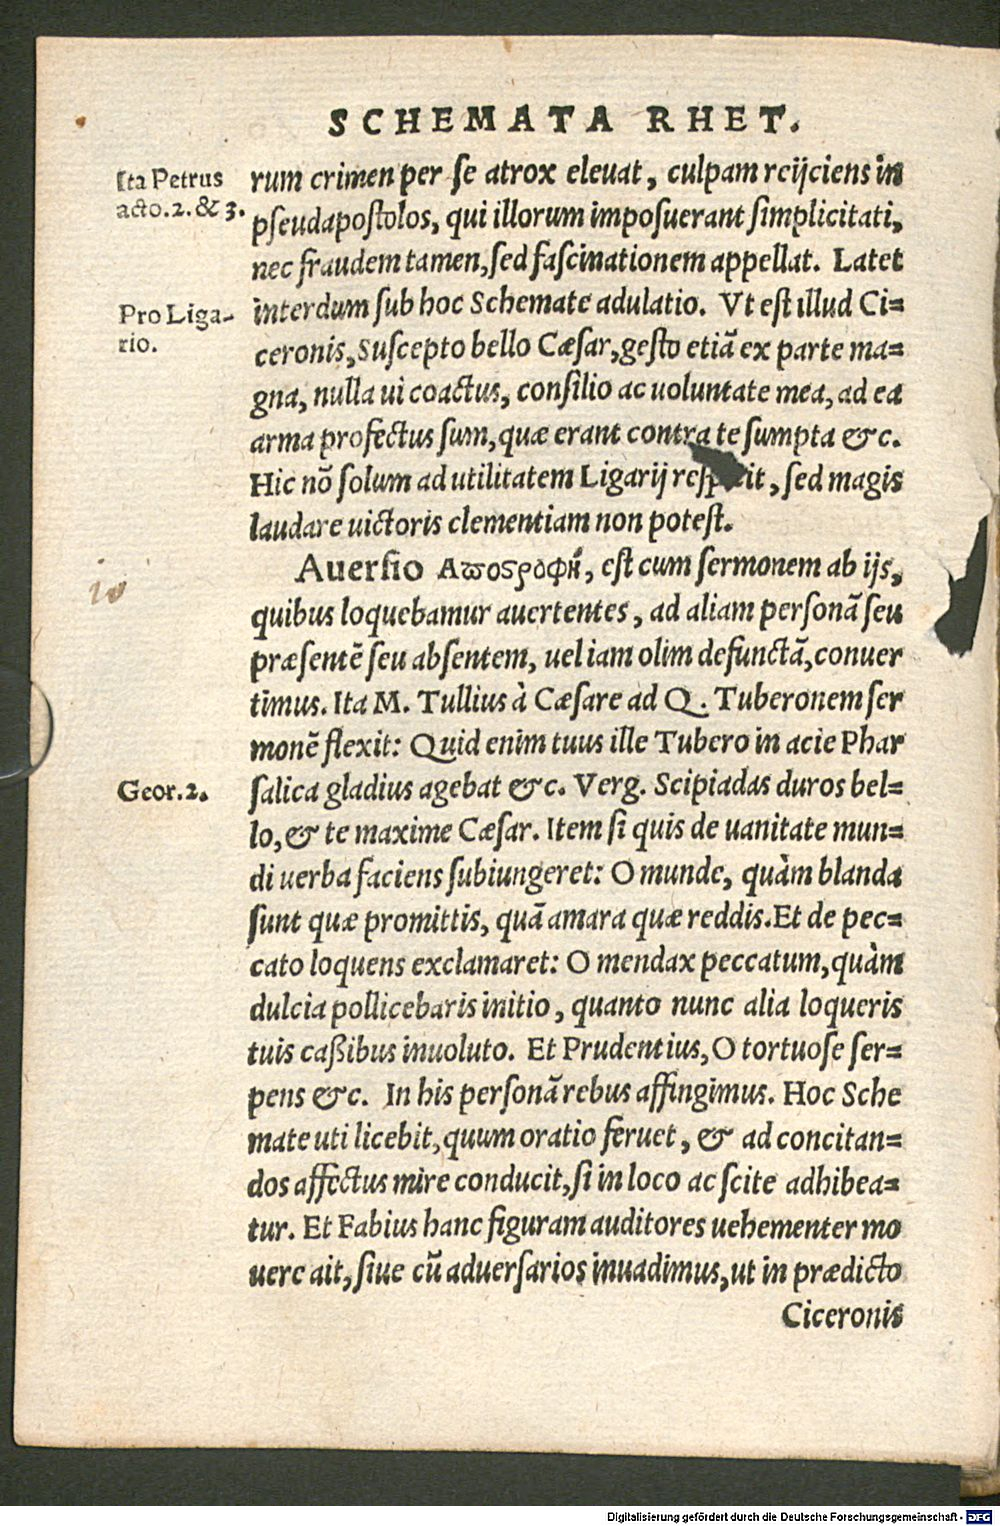 SCHEMATA RHET.
Ita Petrus
acto.2.& 3.
rum crimen per se atrox eleuat, culpam reijciens in
pseudapostolos, qui illorum imposuerant simplicitati,
nec fraudem tamen, sed fascinationem appellat. Latet
Pro Liga-
rio.
interdum sub hoc Schemate adulatio. Vt est illud Ci=
ceronis, Suscepto bello Cæsar, gesto etiã ex parte ma=
gna, nulla ui coactus, consilio ac uoluntate mea, ad ea
arma profectus sum, quæ erant contra te sumpta &c.
Hic nõ solum ad utilitatem Ligarij , sed magis
laudare uictoris clementiam non potest.
Auersio Αποςροφὴ, est cum sermonem ab ijs,
10
quibus loquebamur auertentes, ad aliam personã seu
præsentẽ seu absentem, uel iam olim defunctã, conuer
timus. Ita M. Tullius à Cæsare ad Q. Tuberonem ser
monẽ flexit: Quid enim tuus ille Tubero in acie Phar
Geor.2.
salica gladius agebat &c. Verg. Scipiadas duros bel=
lo, & te maxime Cæsar. Item si quis de uanitate mun=
di uerba faciens subiungeret: O munde, quàm blanda
sunt quæ promittis, quã amara quæ reddis. Et de pec=
cato loquens exclamaret: O mendax peccatum, quàm
dulcia pollicebaris initio, quanto nunc alia loqueris
tuis caßibus inuoluto. Et Prudentius, O tortuose ser=
pens &c. In his personã rebus affingimus. Hoc Sche
mate uti licebit, quum oratio feruet, & ad concitan=
dos affectus mire conducit, si in loco ac scite adhibea=
tur. Et Fabius hanc figuram auditores uehementer mo
uere ait, siue cũ aduersarios inuadimus, ut in prædicto
Ciceronis
Digitalisierung gefördert durch die Deutsche Forschungsgemeinschaft - DFG